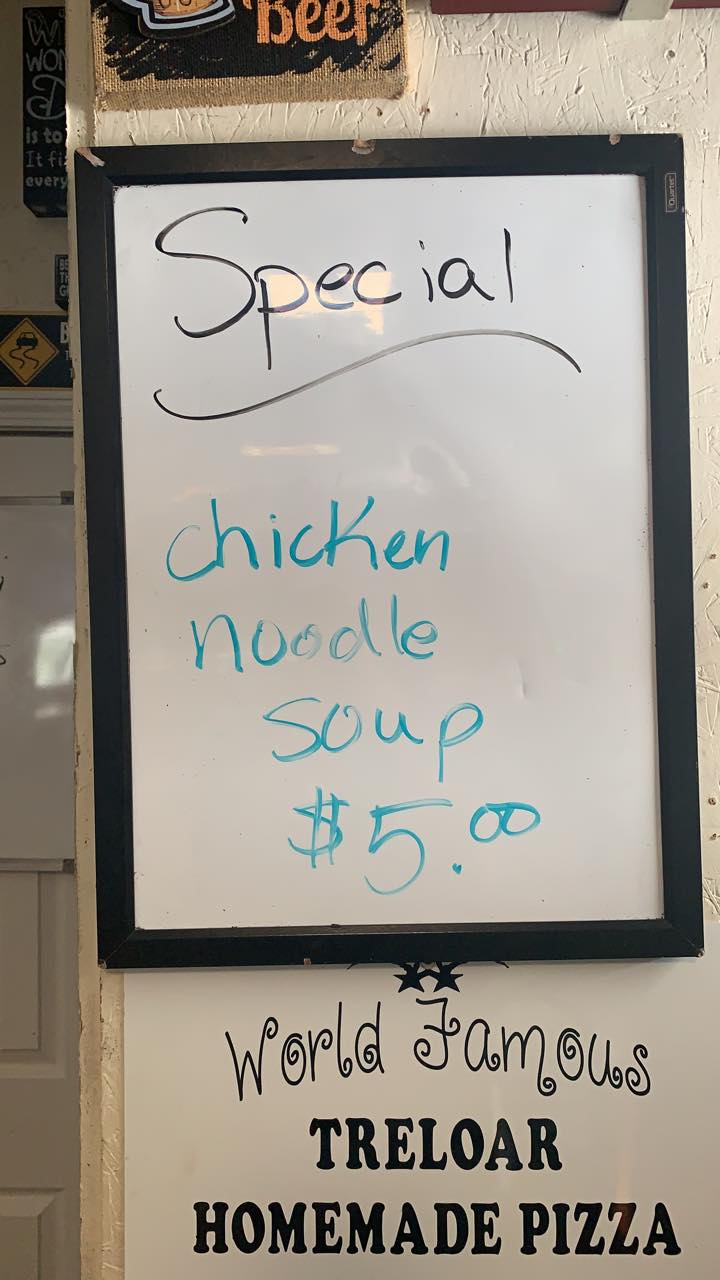 Beer
is to
It fi
every
Quartet
Special
chicken
noodle
soup
$5.00
World Famous
TRELOAR
HOMEMADE PIZZA